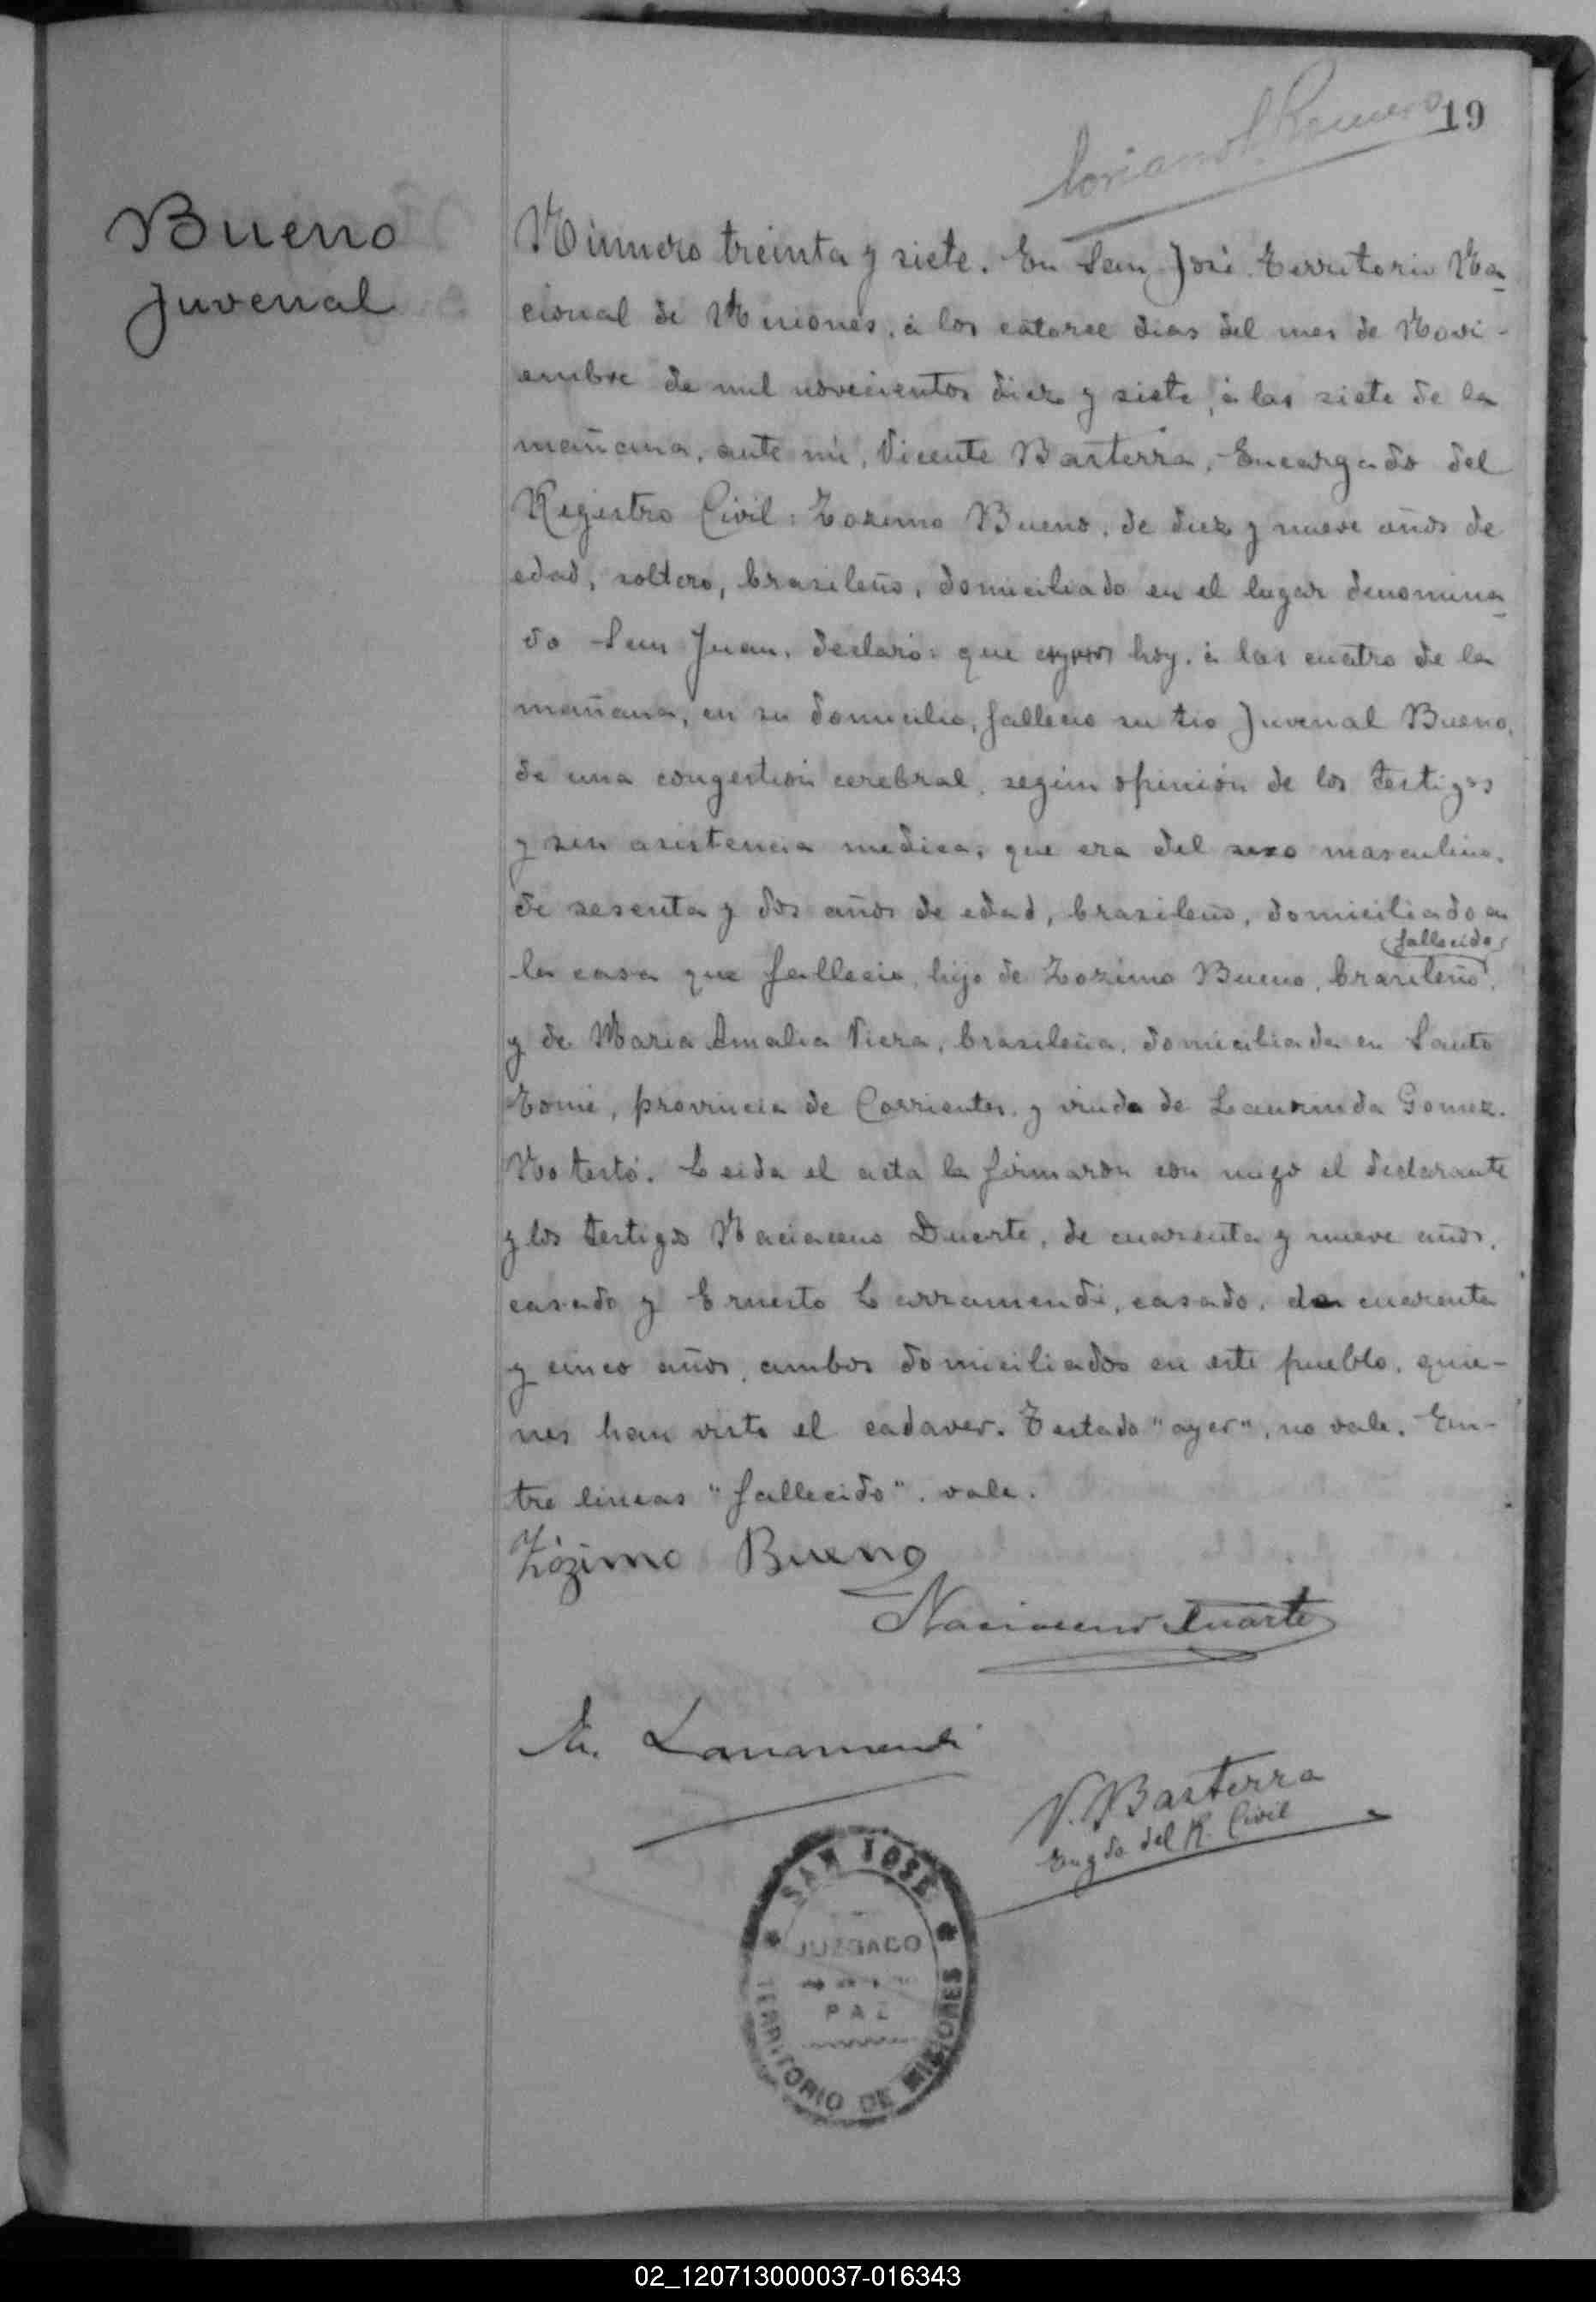 19
Soriano S. Romero
Bueno
Juvenal
Número treinta y siete. En San José Territorio Na
cional de Misiones, á los catorce dias del mes de Novi-
embre de mil novecientos diez y siete, á las siete de la
mañana, ante mi, Vicente Basterra, Encargado del
Registro Civil: Zozimo Bueno, de diez y nueve años de
edad, soltero, brasileño, domiciliado en el lugar denomina
do San Juan, declaró: que ayer hoy, á las cuatro de la
mañana, en su domicilio, fallecio su tio Juvenal Bueno,
de una congestión cerebral, según opinión de los testigos
y sin asistencia medica; que era del sexo masculino,
de sesenta y dos años de edad, brasileño, domiciliado en
(fallecido)
la casa que fallecio, hijo de Zozimo Bueno, brasileño,
y de Maria Amalia Viera, brasileña, domiciliada en Santo
Tomé, provincia de Corrientes, y viuda de Laurinda Gomez.
No testó. Leida el acta la firmaron con migo el declarante
y los testigos Naciaceno Duarte, de cuarenta y nueve años,
casado y Ernesto Larramendi, casado, de cuarenta
y cinco años, ambos domiciliados en este pueblo, quie-
nes han visto el cadaver. Testado "ayer", no vale. En-
tre lineas "fallecido". vale.
Zózimo Bueno
Naciaceno Duarte
E. Larramendi
V. Basterra
Engdo del R. Civil
SAN JOSE
JUZGADO
PAZ
TERRITORIO DE MISIONES
02_120713000037-016343